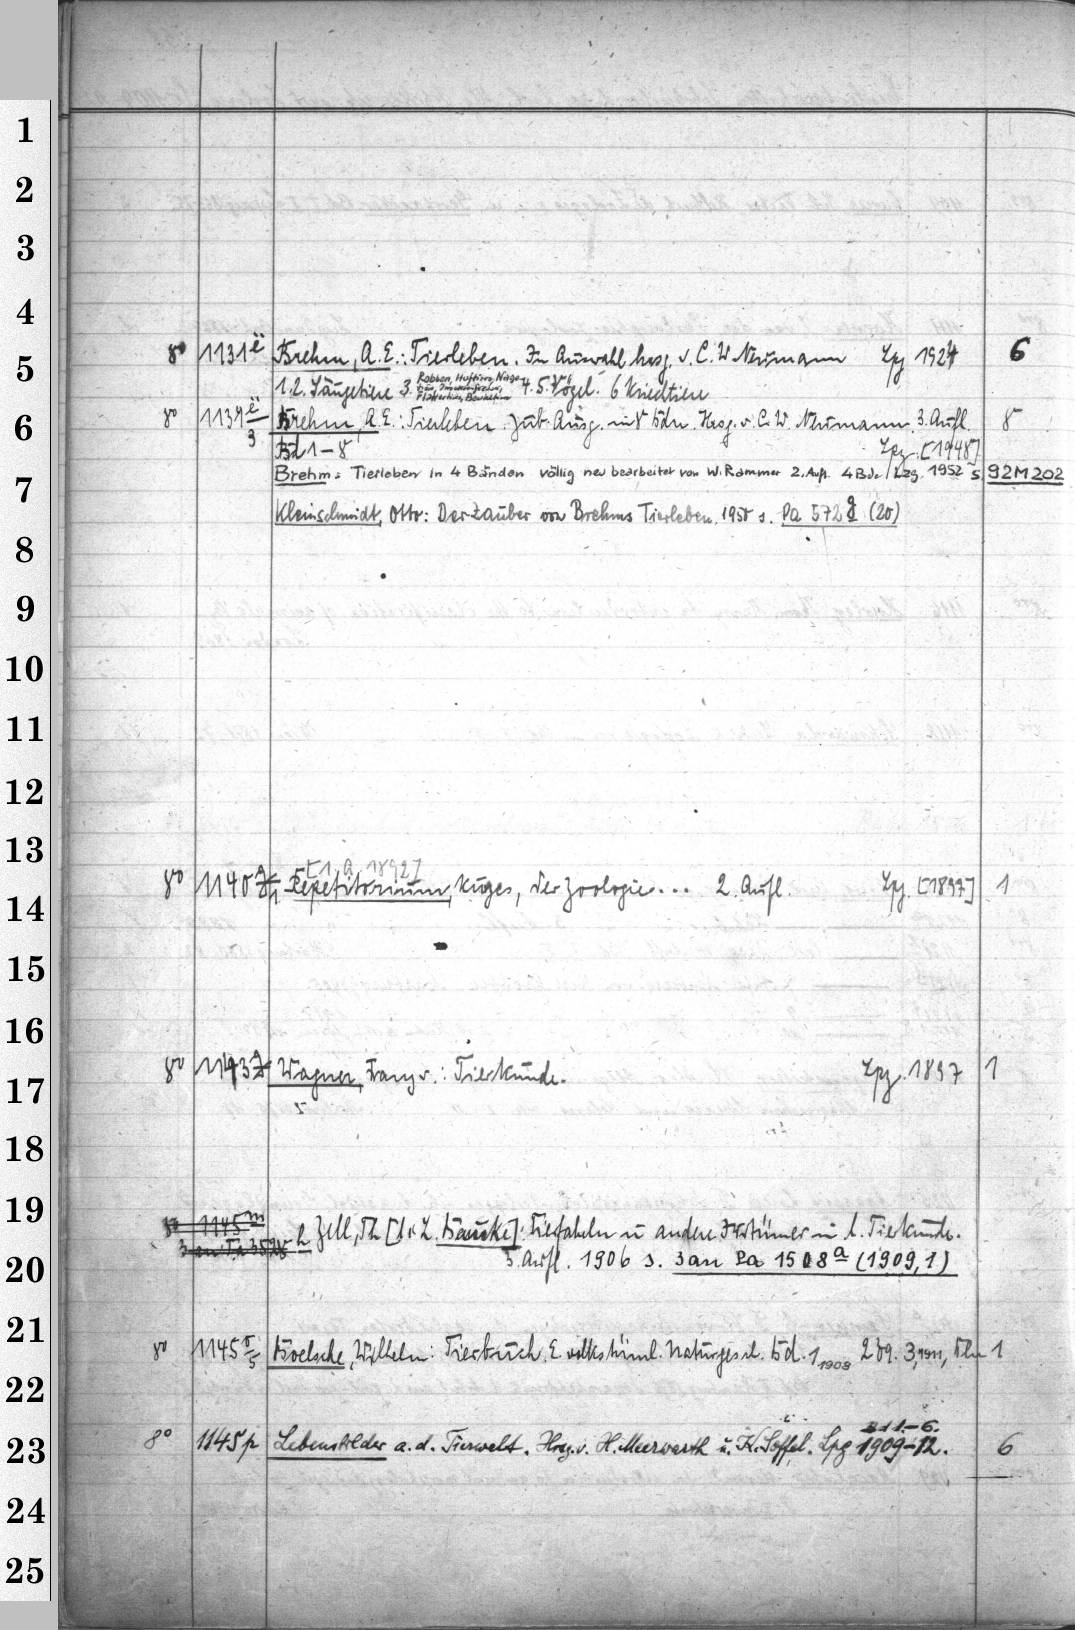 1
2
3
4
5
6
7
8
9
10
11
12
13
14
15
16
17
18
19
20
21
22
23
24
25
8° 1131ë Brehm, A. E.: Tierleben. In Auswahl hrsg. v. C. W. Neumann Lpz 1924 6
1.2. Säugetiere 3. Robben, Huftiere, Nage- 4.5. Vögel. 6 Kriechtiere
8° 1131ë/3 Brehm, A. E.: Tierleben. Jub. Ausg. in 8 Bdn. Hrsg. v. C. W. Neumann. 3. Aufl. 8
Bd 1-8 Lpz. [1948]
Brehm: Tierleben in 4 Bänden völlig neu bearbeitet von W. Rammer 2. Aufl. 4 Bde Lzg. 1952 s. 92 M 202
Kleinschmidt, Otto: Der Zauber von Brehms Tierleben. 1950 s. Pa 572 g (20)
[1. A. 1892]
8° 1140 Repetitorium, kurzes, der Zoologie... 2. Aufl. Lpz. [1897] 1
8° 1143 Wagner, Franz v.: Tierkunde. Lpz. 1897 1
8° 1145m Zell, Th [d. i. L. Bauke]: Tierfabeln u andere Irrtümer in d. Tierkunde.
5. Aufl. 1906 s. 3 an Pa 1508a (1909,1)
8° 1145 Boelsche, Wilhelm: Tierbuch. E. volkstüml. Naturgesch. Bd. 1 1908 3, 1911, Bln 1
Bd 1.-6.
8° 1145p Lebensbilder a. d. Tierwelt. Hrsg. v. H. Meerwarth u. K. Soffel. Lpz 1909-12. 6